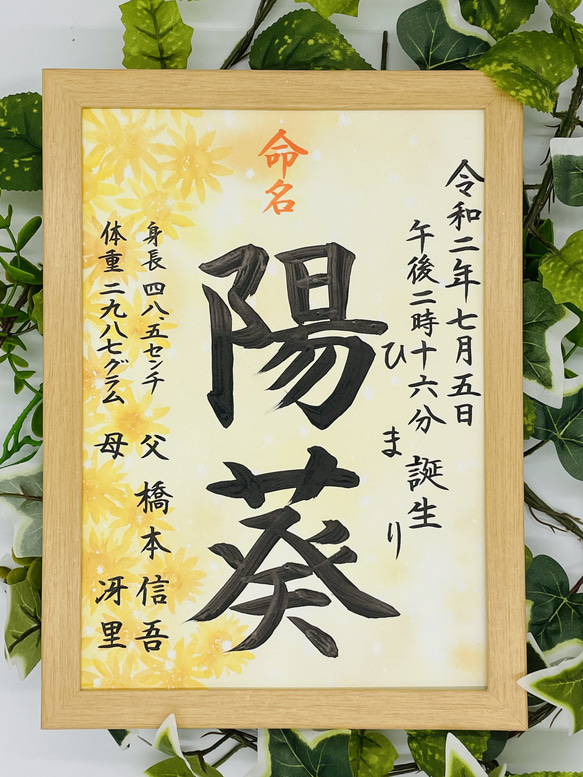 令和二年七月五日
午後二時十六分 誕生
命名
陽葵
ひまり
身長 四八、五センチ
体重 二九八七グラム
父 橋本 信吾
母 冴里